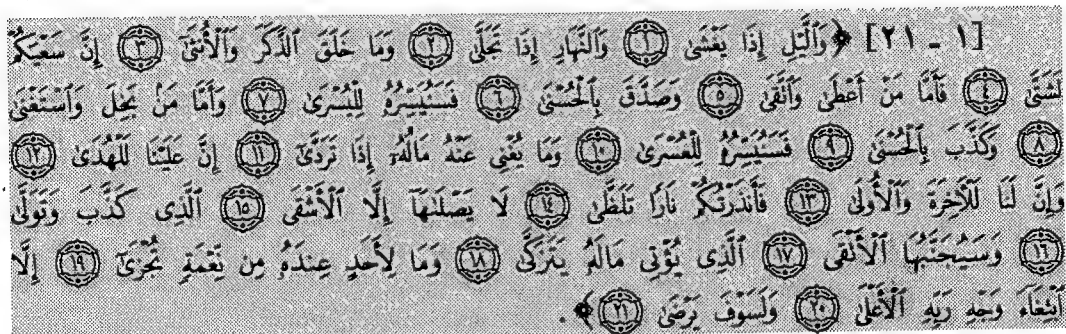 [١ ـ ٢١] ﴿وَٱلَّيۡلِ إِذَا يَغۡشَىٰ ﴿١﴾ وَٱلنَّهَارِ إِذَا تَجَلَّىٰ ﴿٢﴾ وَمَا خَلَقَ ٱلذَّكَرَ وَٱلۡأُنثَىٰٓ ﴿٣﴾ إِنَّ سَعۡيَكُمۡ
لَشَتَّىٰ ﴿٤﴾ فَأَمَّا مَنۡ أَعۡطَىٰ وَٱتَّقَىٰ ﴿٥﴾ وَصَدَّقَ بِٱلۡحُسۡنَىٰ ﴿٦﴾ فَسَنُيَسِّرُهُۥ لِلۡيُسۡرَىٰ ﴿٧﴾ وَأَمَّا مَنۢ بَخِلَ وَٱسۡتَغۡنَىٰ
﴿٨﴾ وَكَذَّبَ بِٱلۡحُسۡنَىٰ ﴿٩﴾ فَسَنُيَسِّرُهُۥ لِلۡعُسۡرَىٰ ﴿١٠﴾ وَمَا يُغۡنِي عَنۡهُ مَالُهُۥٓ إِذَا تَرَدَّىٰٓ ﴿١١﴾ إِنَّ عَلَيۡنَا لَلۡهُدَىٰ ﴿١٢﴾
وَإِنَّ لَنَا لَلۡأٓخِرَةَ وَٱلۡأُولَىٰ ﴿١٣﴾ فَأَنذَرۡتُكُمۡ نَارٗا تَلَظَّىٰ ﴿١٤﴾ لَا يَصۡلَىٰهَآ إِلَّا ٱلۡأَشۡقَى ﴿١٥﴾ ٱلَّذِي كَذَّبَ وَتَوَلَّىٰ
﴿١٦﴾ وَسَيُجَنَّبُهَا ٱلۡأَتۡقَى ﴿١٧﴾ ٱلَّذِي يُؤۡتِي مَالَهُۥ يَتَزَكَّىٰ ﴿١٨﴾ وَمَا لِأَحَدٍ عِندَهُۥ مِن نِّعۡمَةٖ تُجۡزَىٰٓ ﴿١٩﴾ إِلَّا
ٱبۡتِغَآءَ وَجۡهِ رَبِّهِ ٱلۡأَعۡلَىٰ ﴿٢٠﴾ وَلَسَوۡفَ يَرۡضَىٰ ﴿٢١﴾﴾.